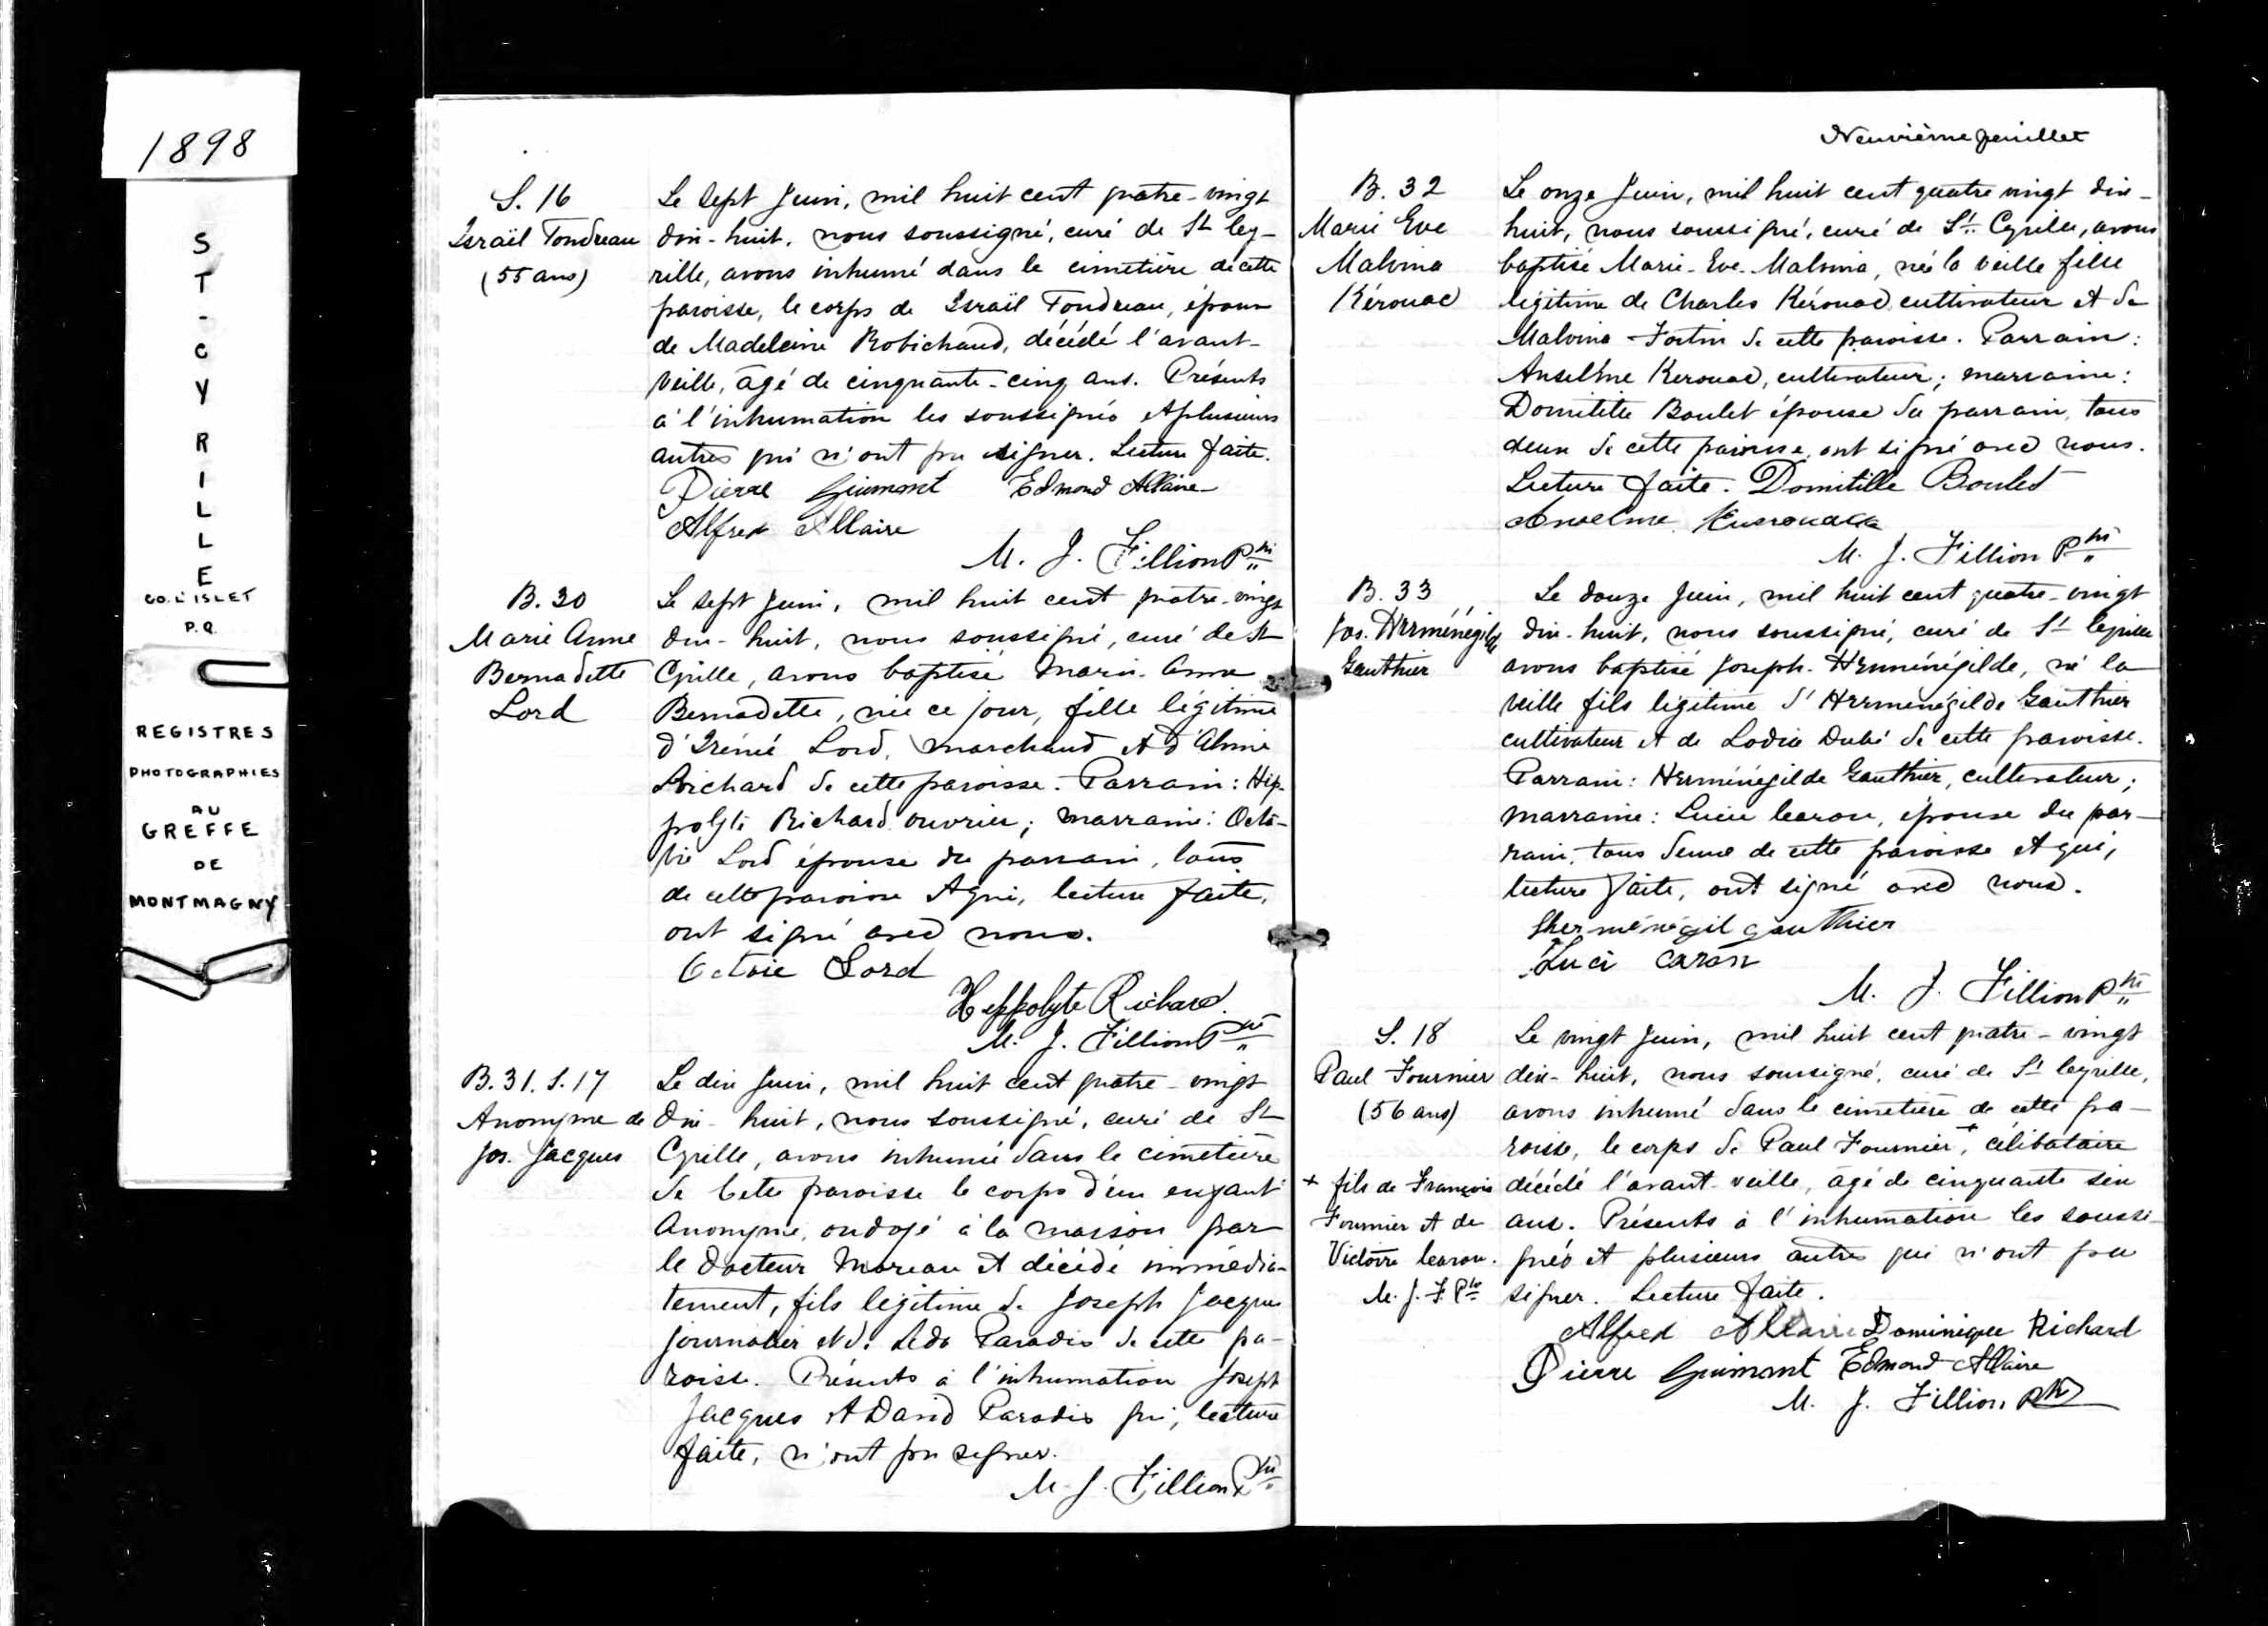 1898
ST-CYRILLE
CO. L'ISLET
P.Q.
REGISTRES
PHOTOGRAPHIES
AU
GREFFE
DE
MONTMAGNY
S. 16
Israël Tondreau
(55 ans)
Le sept Juin, mil huit cent quatre-vingt
dix-huit, nous soussigné, curé de St Cy-
rille, avons inhumé dans le cimetière de cette
paroisse, le corps de Israël Tondreau, époux
de Madeleine Robichaud, décédé l'avant-
veille, âgé de cinquante-cinq ans. Présents
à l'inhumation les soussignés et plusieurs
autres qui n'ont pu signer. Lecture faite.
Pierre Guimont Edmond Allaire
Alfred Allaire
M. J. Fillion Ptre
B. 30
Marie Anne
Bernadette
Lord
Le sept Juin, mil huit cent quatre-vingt
dix-huit, nous soussigné, curé de St
Cyrille, avons baptisé Marie-Anne
Bernadette, née ce jour, fille légitime
d'Irénée Lord, marchand et d'Alvine
Richard de cette paroisse. Parrain: Hip-
polyte Richard ouvrier; marraine: Octa-
vie Lord épouse du parrain, tous
de cette paroisse et qui, lecture faite,
ont signé avec nous.
Octavie Lord
Hippolyte Richard.
M. J. Fillion Ptre
B. 31. S. 17
Anonyme de
Jos. Jacques
Le dix Juin, mil huit cent quatre-vingt
dix-huit, nous soussigné, curé de St
Cyrille, avons inhumé dans le cimetière
de cette paroisse le corps d'un enfant
Anonyme, ondoyé à la maison par
le docteur Moreau et décédé immédia-
tement, fils légitime de Joseph Jacques
journalier et de Léda Paradis de cette pa-
roisse. Présents à l'inhumation Joseph
Jacques et David Paradis qui, lecture
faite, n'ont pu signer.
M. J. Fillion Ptre
Neuvième feuillet
B. 32
Marie Eve
Malvina
Kérouac
Le onze Juin, mil huit cent quatre vingt dix-
huit, nous soussigné, curé de St. Cyrille, avons
baptisé Marie-Eve-Malvina, née la veille fille
légitime de Charles Kérouac cultivateur et de
Malvina Fortin de cette paroisse. Parrain:
Anselme Kerouac, cultivateur; marraine:
Domitille Boulet épouse du parrain, tous
deux de cette paroisse, ont signé avec nous.
Lecture faite. Domitille Boulet
Anselme
M. J. Fillion Ptre
B. 33
Jos. Herménégilde
Gauthier
Le douze Juin, mil huit cent quatre-vingt
dix-huit, nous soussigné, curé de St Cyrille
avons baptisé Joseph-Herménégilde, né la
veille fils légitime d'Herménégilde Gauthier
cultivateur et de Lodia Dubé de cette paroisse.
Parrain: Herménégilde Gauthier, cultivateur;
marraine: Lucie Caron, épouse du par-
rain, tous deux de cette paroisse et qui,
lecture faite, ont signé avec nous.
Lucie Caron
M. J. Fillion Ptre
S. 18
Paul Fournier
(56 ans)
+ fils de François
Fournier et de
Victoire Caron.
M. J. F. Ptre
Le vingt Juin, mil huit cent quatre-vingt
dix-huit, nous soussigné, curé de St Cyrille,
avons inhumé dans le cimetière de cette pa-
roisse, le corps de Paul Fournier +, célibataire
décédé l'avant-veille, âgé de cinquante six
ans. Présents à l'inhumation les soussi-
gnés et plusieurs autres qui n'ont pu
signer. Lecture faite.
Alfred Allaire Dominique Richard
Pierre Guimont Edmond Allaire
M. J. Fillion Ptre